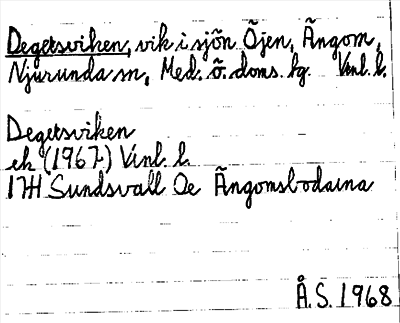 Degetsviken, vik i sjön Öjen, Ängom,
Njurunda sn, Med. ö. doms. hg. Vinl. l.
Degetsviken
ek (1967) Vinl. l.
17H Sundsvall Oe Ängomsbodarna
Å.S. 1968